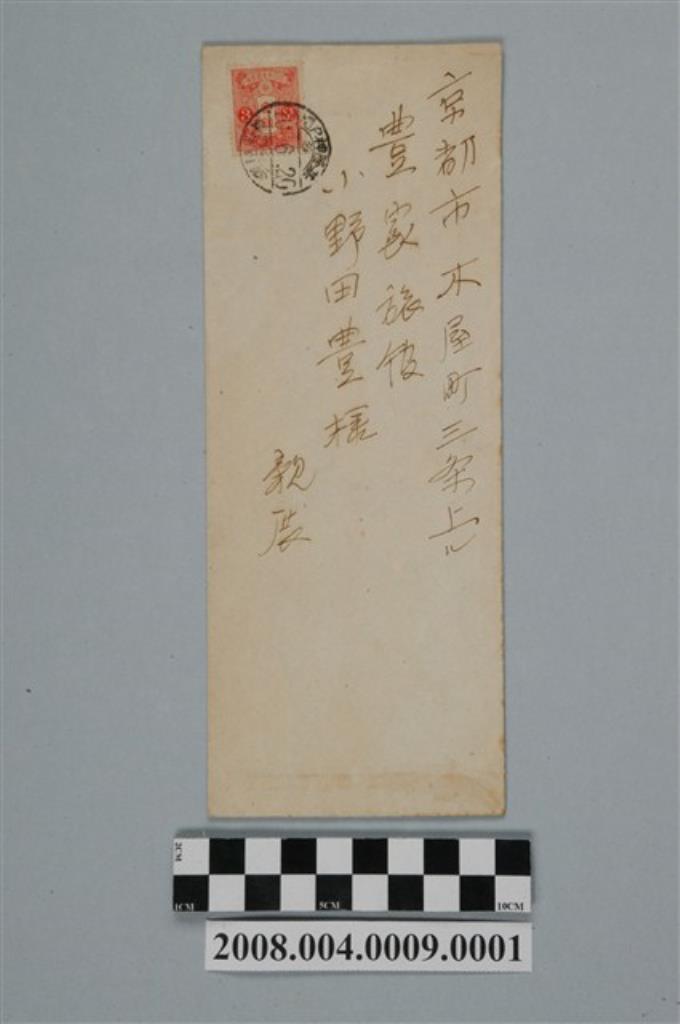 京都市木屋町三条上ル
豊家旅館
小野田豊様
親展
3 3
6.20
2CM
1CM 5CM 10CM
2008.004.0009.0001